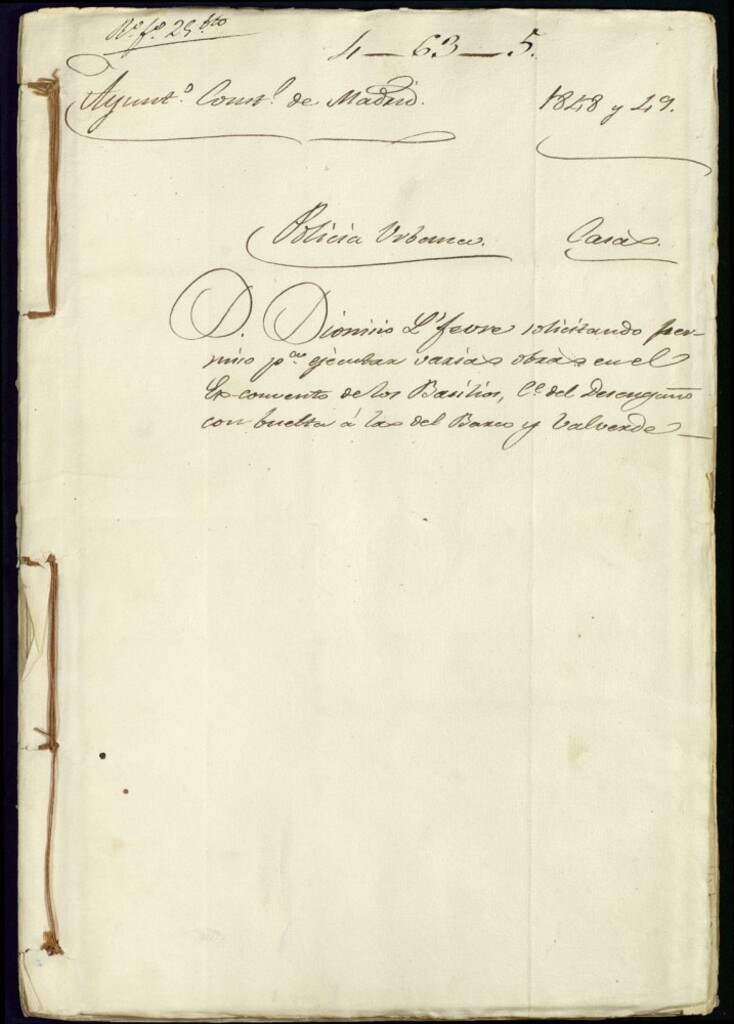 Rº fº 29 bto
4 — 63 — 5.
Ayuntº Constl de Madrid.
1848 y 49.
Policia Urbana.
Casas.
D. Dionisio L'febre solicitando per-
miso pª ejecutar varias obras en el
Ex-convento de los Basilios, Ce del Desengaño
con buelta á las del Barco y Valverde —